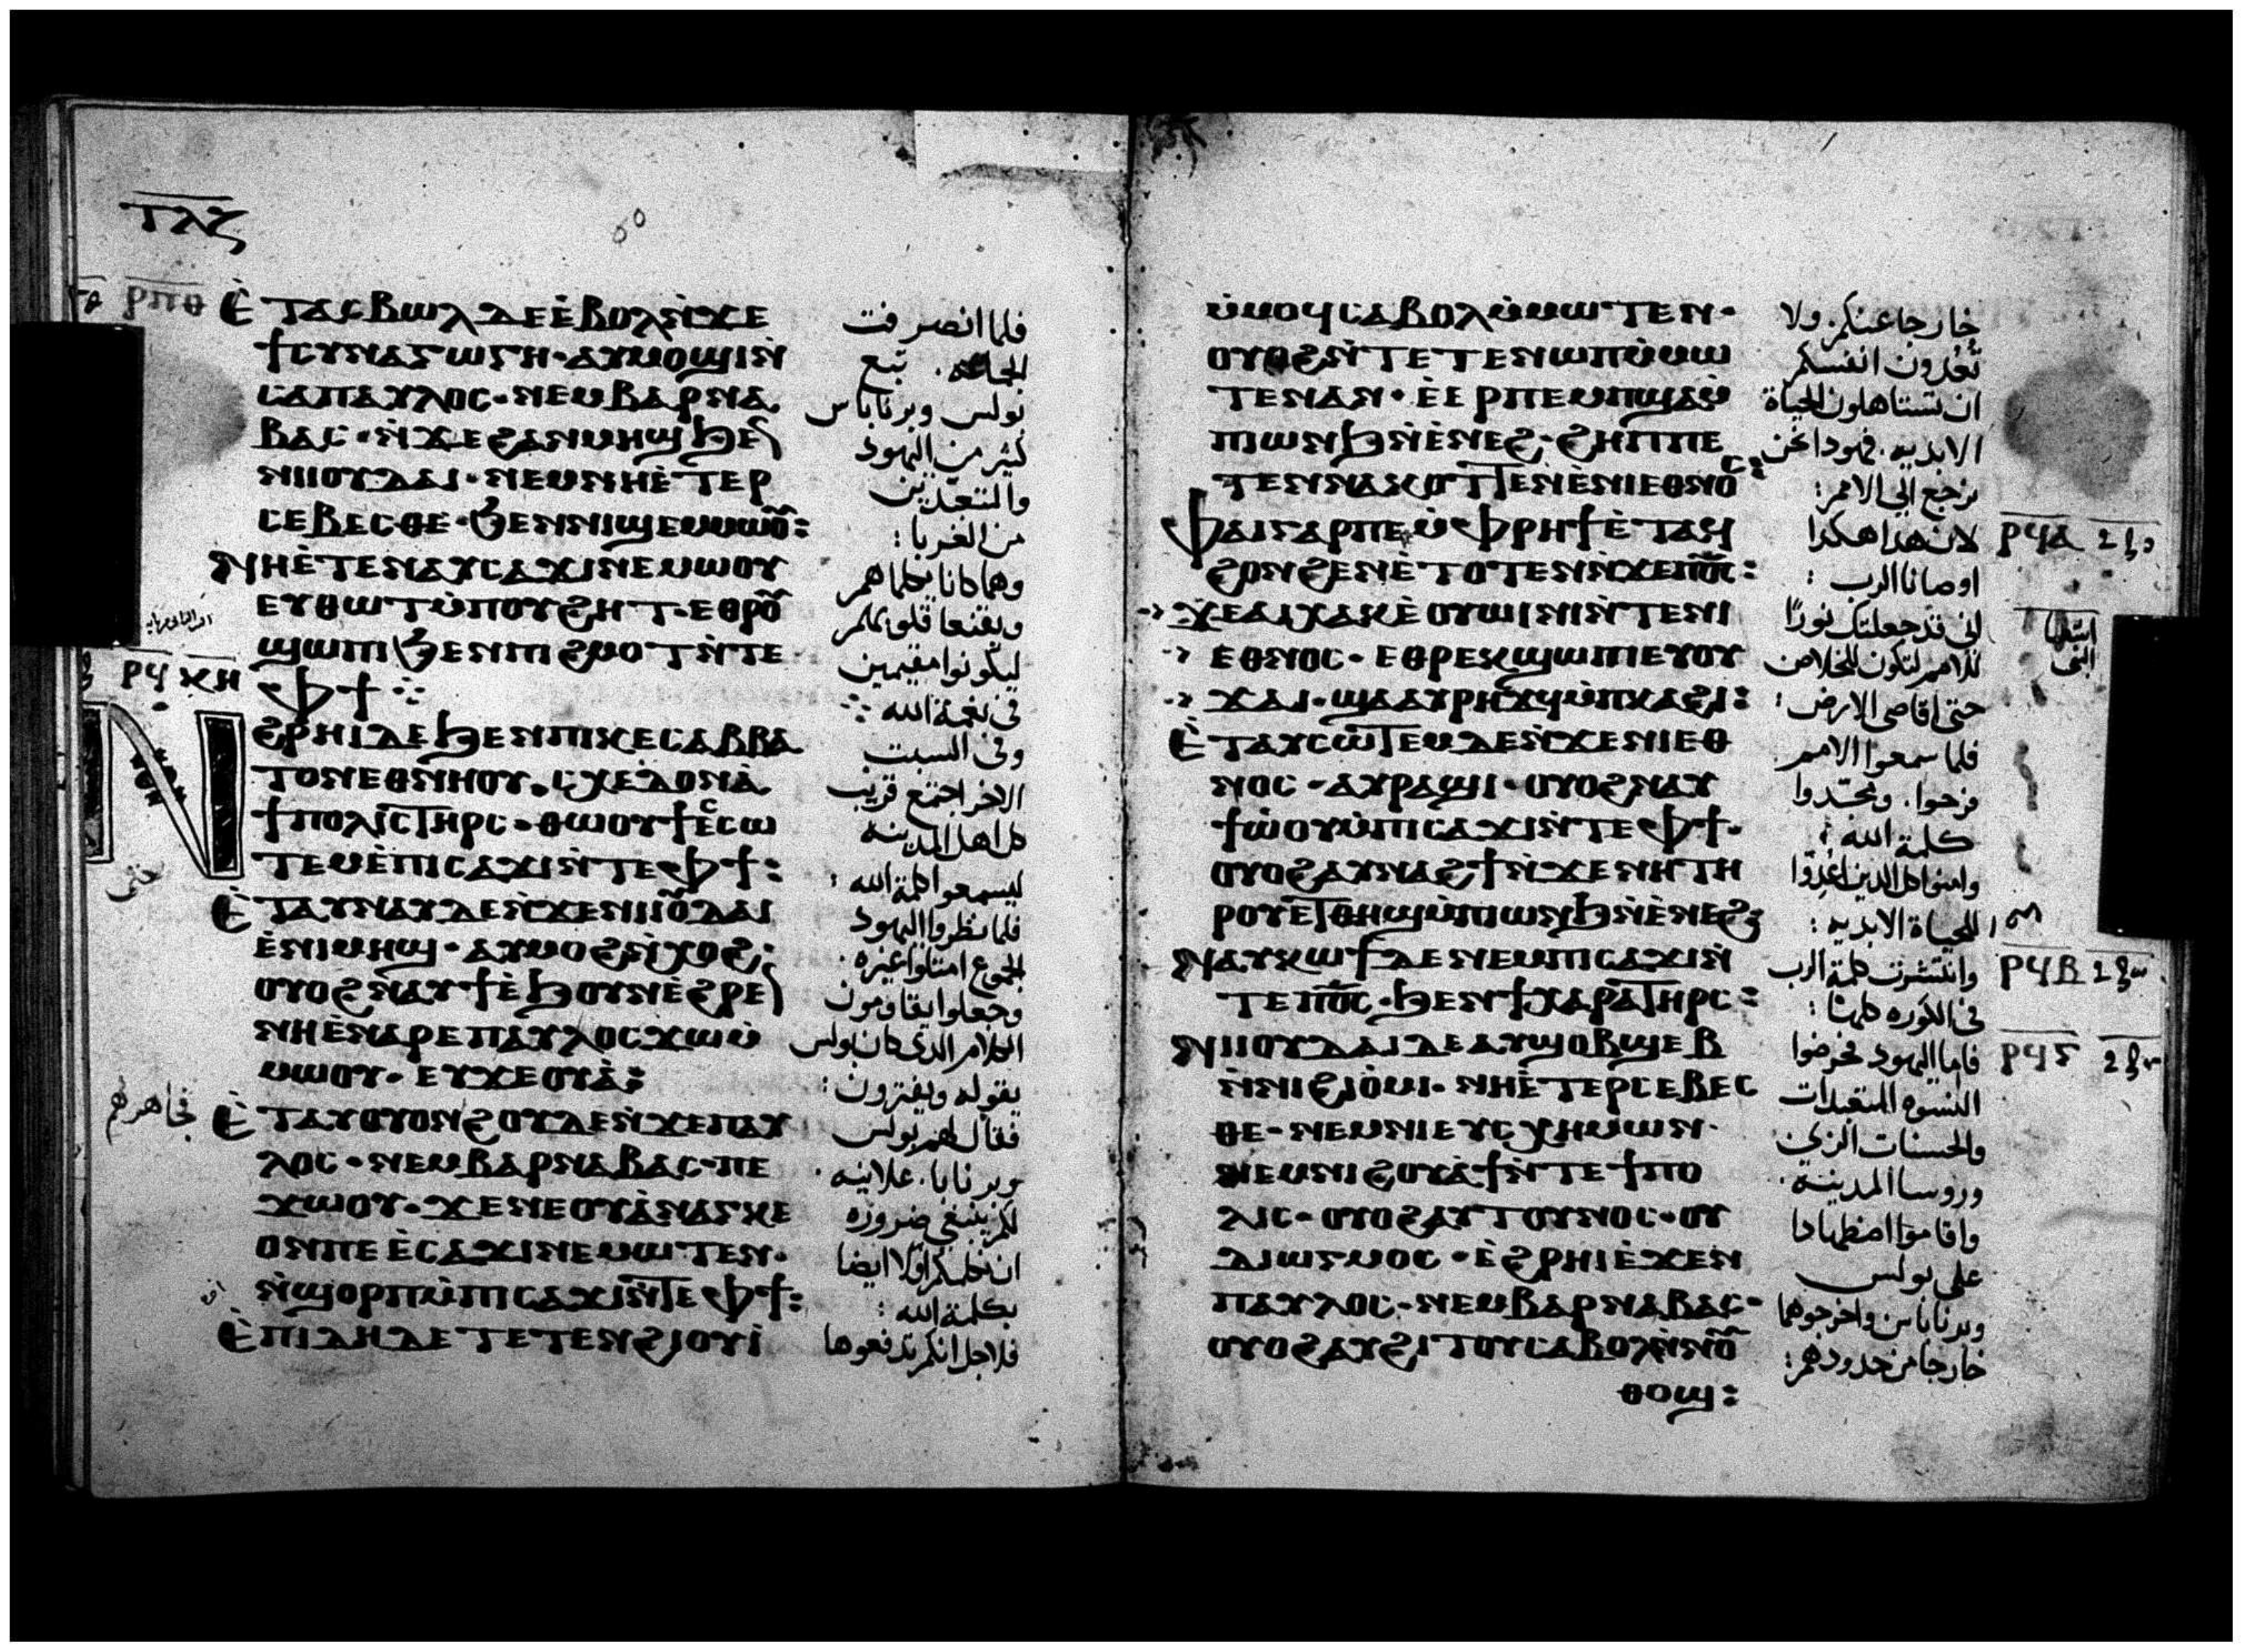 ⲧⲗⲍ
ⲣⲡⲑ
ⲉ̀ⲧⲁⲥⲃⲱⲗ ⲇⲉ ⲉ̀ⲃⲟⲗ ⲛ̀ϫⲉ
ϯⲥⲩⲛⲁⲅⲱⲅⲏ · ⲁⲩⲙⲟϣⲓ ⲛ̀
ⲥⲁ ⲡⲁⲩⲗⲟⲥ · ⲛⲉⲙ ⲃⲁⲣⲛⲁ
ⲃⲁⲥ · ⲛ̀ϫⲉ ϩⲁⲛⲙⲏϣ ϧⲉⲛ
ⲛⲓⲓⲟⲩⲇⲁⲓ · ⲛⲉⲙ ⲛⲏⲉ̀ⲧⲉⲣ
ⲥⲉⲃⲉⲥⲑⲉ · ϧⲉⲛ ⲛⲓϣⲉⲙⲙⲱⲟⲩ :
ⲛⲏⲉ̀ⲧⲉⲛⲁⲩⲥⲁϫⲓ ⲛⲉⲙⲱⲟⲩ
ⲉⲩⲑⲱⲧ ⲙ̀ⲡⲟⲩϩⲏⲧ · ⲉⲑⲣⲟⲩ
ϣⲱⲡⲓ ϧⲉⲛ ⲡⲓϩⲙⲟⲧ ⲛ̀ⲧⲉ
ⲫϯ ⁘
ⲣϥ ⲕⲏ
ⲛ̀ϩⲣⲏⲓ ⲇⲉ ϧⲉⲛ ⲡⲓⲕⲉⲥⲁⲃⲃⲁ
ⲧⲟⲛ ⲉⲑⲛⲏⲟⲩ · ⲥⲭⲉⲇⲟⲛ ⲁ̀
ϯⲡⲟⲗⲓⲥ ⲧⲏⲣⲥ · ⲑⲱⲟⲩϯ ⲉ̀ⲥⲱ
ⲧⲉⲙ ⲉ̀ⲡⲓⲥⲁϫⲓ ⲛ̀ⲧⲉ ⲫϯ :
ⲉ̀ⲧⲁⲩⲛⲁⲩ ⲇⲉ ⲛ̀ϫⲉ ⲛⲓⲓⲟⲩⲇⲁⲓ
ⲉ̀ⲛⲓⲙⲏϣ · ⲁⲩⲙⲟϩ ⲛ̀ⲭⲟϩ :
ⲟⲩⲟϩ ⲛⲁⲩϯ ⲉ̀ϧⲟⲩⲛ ⲉ̀ϩⲣⲉⲛ
ⲛⲏⲉ̀ⲛⲁⲣⲉ ⲡⲁⲩⲗⲟⲥ ϫⲱ ⲙ̀
ⲙⲱⲟⲩ · ⲉⲩϫⲉⲟⲩⲁ̀ :
ⲉ̀ⲧⲁⲩⲟⲩⲟⲛϩⲟⲩ ⲇⲉ ⲛ̀ϫⲉ ⲡⲁⲩ
ⲗⲟⲥ · ⲛⲉⲙ ⲃⲁⲣⲛⲁⲃⲁⲥ · ⲡⲉ
ϫⲱⲟⲩ · ϫⲉ ⲛⲉ ⲟⲩⲁ̀ⲛⲁⲅⲕⲉ
ⲟⲛ ⲡⲉ ⲉ̀ⲥⲁϫⲓ ⲛⲉⲙⲱⲧⲉⲛ ·
ⲛ̀ϣⲟⲣⲡ ⲙ̀ⲡⲓⲥⲁϫⲓ ⲛ̀ⲧⲉ ⲫϯ :
ⲉ̀ⲡⲓⲇⲏ ⲇⲉ ⲧⲉⲧⲉⲛϩⲓⲟⲩⲓ̀
فلما انصرفت
الجماعه · تبع
بولس وبرناباس
كثير من اليهود
والمتعبدين
من الغربا :
وهما كانا يكلماهم
ويقنعا قلوبهم
ليكونوا مقيمين
في نعمة الله ⁘
وفي السبت
الاخر اجتمع قريب
كل اهل المدينه
ليسمعوا كلمة الله :
فلما نظروا اليهود
الجموع امتلوا غيره ·
وجعلوا يقاومون
الكلام الذي كان بولس
يقوله ويفترون :
فقال لهم بولس
وبرنابا · علانيه ·
لكم ينبغي ضروره
ان نكلمكم اولا ايضا
بكلمة الله :
فلاجل انكم تدفعوها
حتى
فجاهرهم
ⲙ̀ⲙⲟϥ ⲥⲁⲃⲟⲗ ⲙ̀ⲙⲱⲧⲉⲛ ·
ⲟⲩⲟϩ ⲛ̀ⲧⲉⲧⲉⲛⲱⲡ ⲙ̀ⲙⲱ
ⲧⲉⲛ ⲁⲛ · ⲉ̀ⲉⲣⲡⲉⲙⲡϣⲁ ⲙ̀
ⲡⲓⲱⲛϧ ⲛ̀ⲉ̀ⲛⲉϩ · ϩⲏⲡⲡⲉ
ⲧⲉⲛⲛⲁⲕⲟⲧⲧⲉⲛ ⲉ̀ⲛⲓⲉⲑⲛⲟⲥ :
ⲫⲁⲓ ⲅⲁⲣ ⲡⲉ ⲙ̀ⲫⲣⲏϯ ⲉ̀ⲧⲁϥ
ϩⲟⲛϩⲉⲛ ⲉ̀ⲧⲟⲧⲉⲛ ⲛ̀ϫⲉ ⲡⲟ̅ⲥ̅ :
ϫⲉ ⲁⲓⲭⲁⲕ ⲉ̀ⲟⲩⲱⲓⲛⲓ ⲛ̀ⲧⲉ ⲛⲓ
ⲉⲑⲛⲟⲥ · ⲉⲑⲣⲉⲕϣⲱⲡⲓ ⲉⲩⲟⲩ
ϫⲁⲓ · ϣⲁ ⲁⲩⲣⲏϫϥ ⲙ̀ⲡⲕⲁϩⲓ :
ⲉ̀ⲧⲁⲩⲥⲱⲧⲉⲙ ⲇⲉ ⲛ̀ϫⲉ ⲛⲓⲉⲑ
ⲛⲟⲥ · ⲁⲩⲣⲁϣⲓ · ⲟⲩⲟϩ ⲛⲁⲩ
ϯⲱ̀ⲟⲩ ⲙ̀ⲡⲓⲥⲁϫⲓ ⲛ̀ⲧⲉ ⲫϯ ·
ⲟⲩⲟϩ ⲁⲩⲛⲁϩϯ ⲛ̀ϫⲉ ⲛⲏⲧⲏ
ⲣⲟⲩ ⲉⲧⲑⲏϣ ⲙ̀ⲡⲓⲱⲛϧ ⲛ̀ⲉ̀ⲛⲉϩ :
ⲛⲁⲩⲕⲱϯ ⲇⲉ ⲛⲉⲙ ⲡⲓⲥⲁϫⲓ ⲛ̀
ⲧⲉ ⲡⲟ̅ⲥ̅ · ϧⲉⲛ ϯⲭⲱⲣⲁ ⲧⲏⲣⲥ :
ⲛⲓⲓⲟⲩⲇⲁⲓ ⲇⲉ ⲁⲩϣⲟⲃϣⲉⲃ
ⲛ̀ⲛⲓϩⲓⲟ̀ⲙⲓ · ⲛⲏⲉ̀ⲧⲉⲣⲥⲉⲃⲉⲥ
ⲑⲉ · ⲛⲉⲙ ⲛⲓⲉⲩⲥⲭⲏⲙⲱⲛ ·
ⲛⲉⲙ ⲛⲓϩⲟⲩⲁ̀ϯ ⲛ̀ⲧⲉ ϯⲡⲟ
ⲗⲓⲥ · ⲟⲩⲟϩ ⲁⲩⲧⲟⲩⲛⲟⲥ · ⲟⲩ
ⲇⲓⲱⲅⲙⲟⲥ · ⲉ̀ϩⲣⲏⲓ ⲉ̀ϫⲉⲛ
ⲡⲁⲩⲗⲟⲥ · ⲛⲉⲙ ⲃⲁⲣⲛⲁⲃⲁⲥ ·
ⲟⲩⲟϩ ⲁⲩϩⲓⲧⲟⲩ ⲥⲁⲃⲟⲗ ⲛ̀ⲛⲟⲩ
ⲑⲟϣ :
خارجا عنكم ولا
تعدون انفسكم
ان تستاهلون الحياة
الابديه · فهوذا نحن
نرجع الى الامم :
لان هذا هكذا
اوصانا الرب :
اني قد جعلتك نورًا
للامم لتكون للخلاص
حتى اقاصي الارض :
فلما سمعوا الامم
فرحوا · ومجّدوا
كلمة الله :
وامنوا كل الذين اعدوا
للحياة الابديه :
وانتشرت كلمة الرب
في الكوره كلها :
فاما اليهود فحرضوا
النسوه المتعبدات
والحسنات الزي
وروسا المدينة ·
واقاموا اضطهادا
على بولس
وبرناباس واخرجوهما
خارجا من حدودهم :
ⲣϥⲁ
ⲣϥⲃ
ⲣϥⲅ